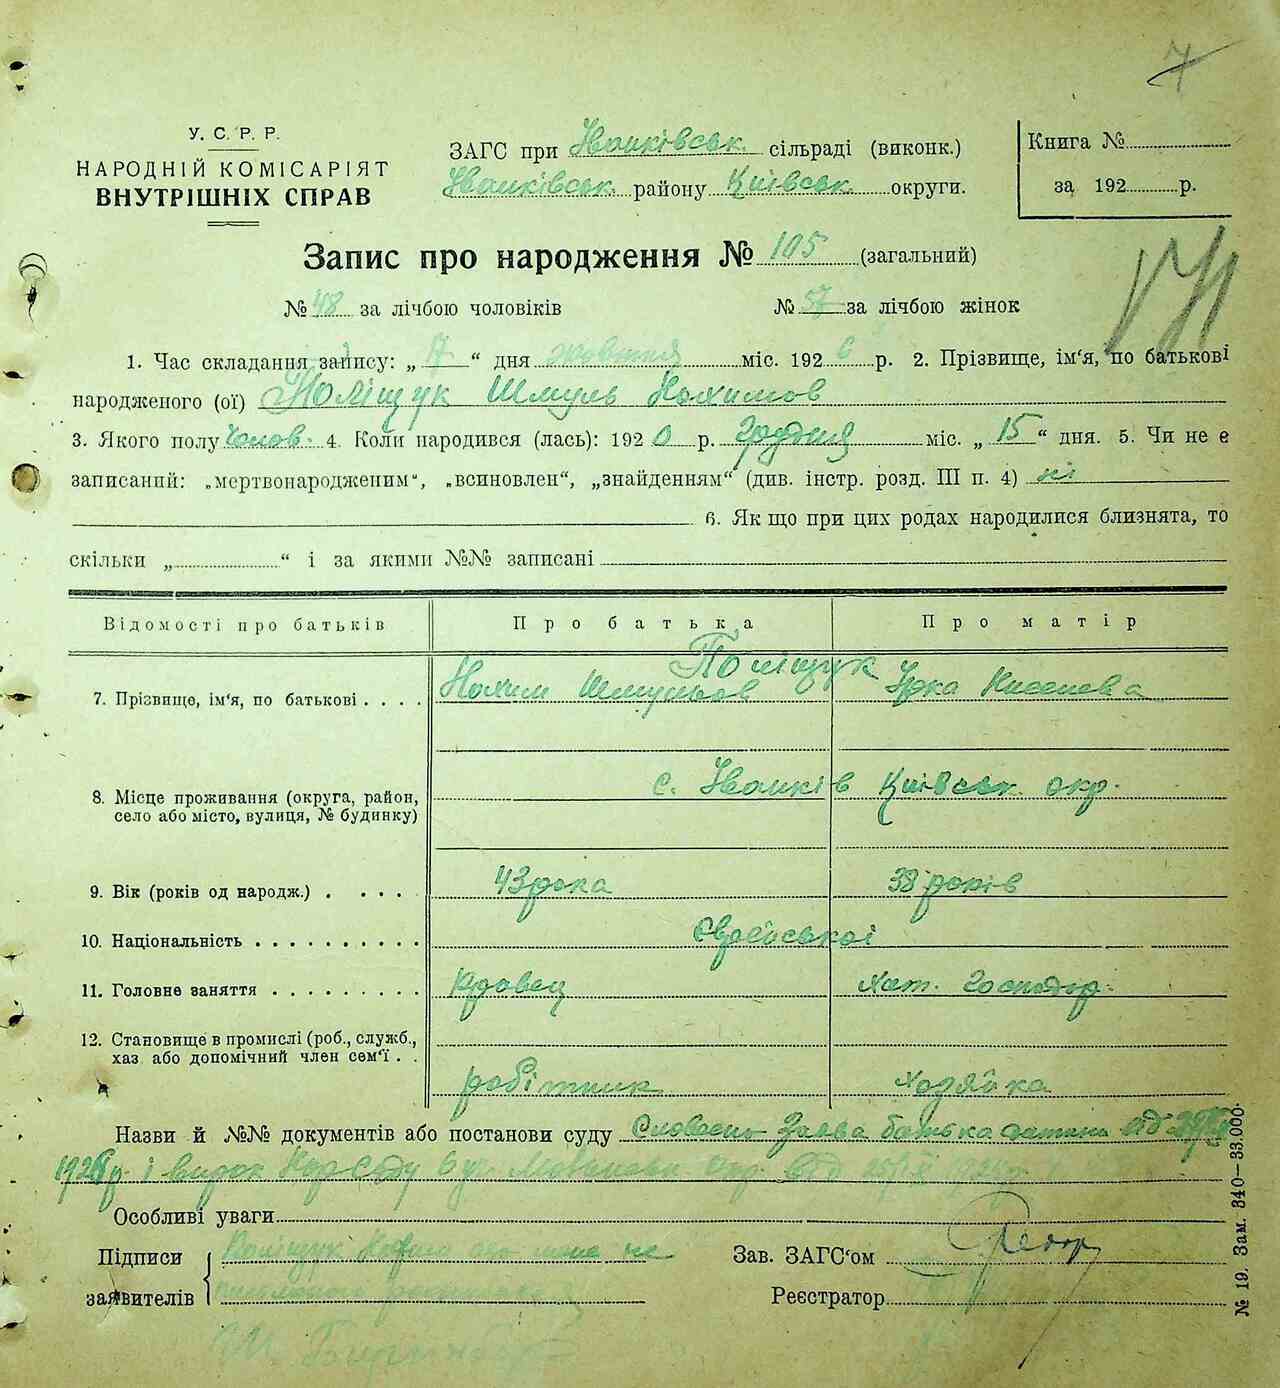 7
У. С. Р. Р.
НАРОДНІЙ КОМІСАРІЯТ
ВНУТРІШНІХ СПРАВ
ЗАГС при Іванківськ. сільраді (виконк.)
Іванківськ. району Київськ. округи.
Книга №
за 192 р.
Запис про народження № 105 (загальний)
№ 48 за лічбою чоловіків № 57 за лічбою жінок
1. Час складання запису: „ 17 “ дня жовтня міс. 192 6 р. 2. Прізвище, ім‘я, по батькові
народженого (ої) Поліщук Шмуль Нохимов
3. Якого полу Чолов. 4. Коли народився (лась): 192 0 р. Грудня міс. „ 15 “ дня. 5. Чи не є
записаний: „мертвонародженим“, „всиновлен“, „знайденням“ (див. інстр. розд. III п. 4) ні
6. Як що при цих родах народилися близнята, то
скільки „ “ і за якими №№ записані
Відомості про батьків Про батька Про матір
Поліщук
7. Прізвище, ім‘я, по батькові . . . . Нохим Шмульов Урка Киселева
8. Місце проживання (округа, район, село або місто, вулиця, № будинку) с. Іванків Київськ. окр.
9. Вік (років од народж.) . . . . . 43 рока 38 років
10. Національність . . . . . . . . . . Єврейської
11. Головне заняття . . . . . . . . . Кравец Хат. Господар.
12. Становище в промислі (роб., служб.,
хаз або допомічний член сем‘ї . . робітник Хозяйка
Назви й №№ документів або постанови суду Словесно Заява батька дитини від
і Нар Суду окр. від
Особливі уваги
Підписи Поліщук не
заявителів
Зав. ЗАГС‘ом
Реєстратор
№ 19. Зам. 340—33.000.